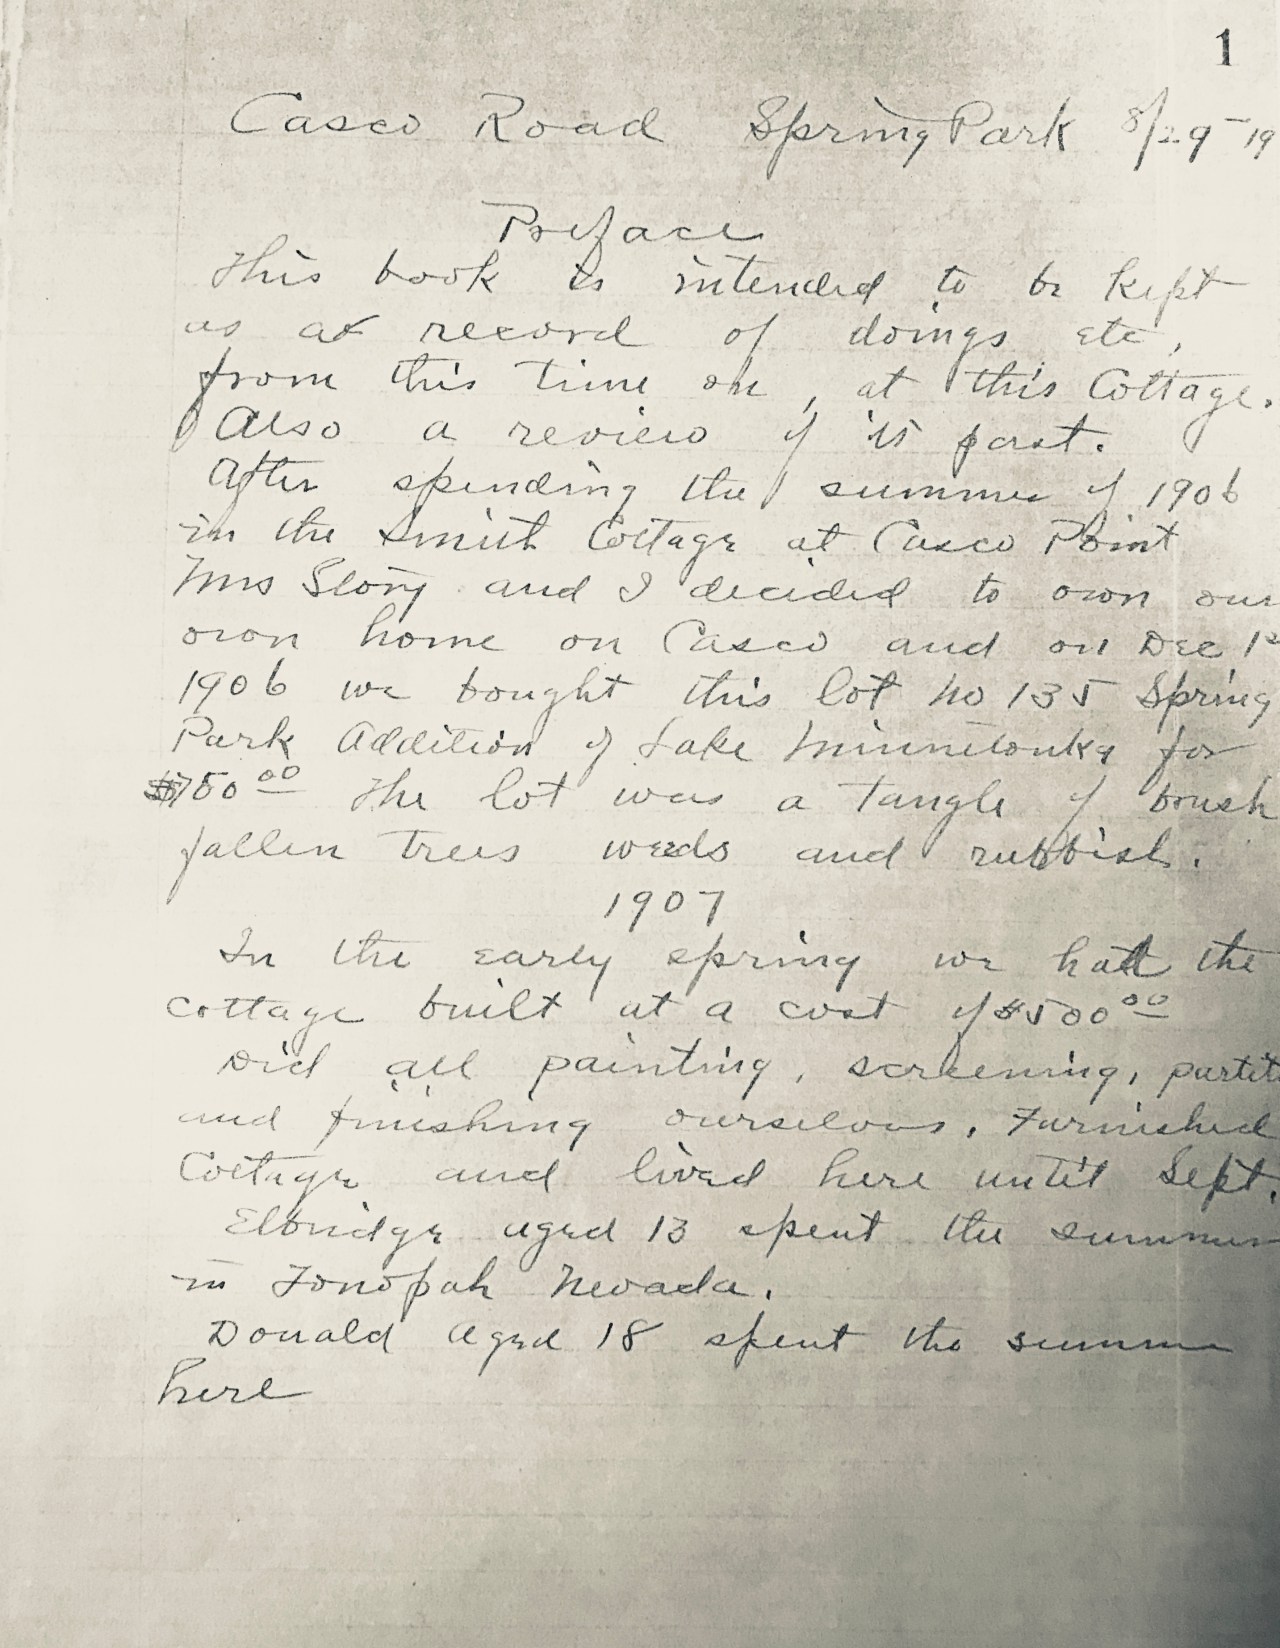 1
Casco Road Spring Park 8/29-19
Preface
This book is intended to be kept
as a record of doings etc,
from this time on, at this Cottage.
Also a review of its past.
After spending the summer of 1906
in the Smith Cottage at Casco Point
Mrs Story and I decided to own our
own home on Casco and on Dec 1st
1906 we bought this lot No 135 Spring
Park Addition of Lake Minnetonka for
$750.00 The lot was a tangle of brush
fallen trees weeds and rubbish.
1907
In the early spring we had the
cottage built at a cost of $500.00
Did all painting, screening, partit
and finishing ourselves. Furnished
Cottage and lived here until Sept.
Elbridge aged 13 spent the summer
in Tonopah Nevada.
Donald aged 18 spent the summer
here